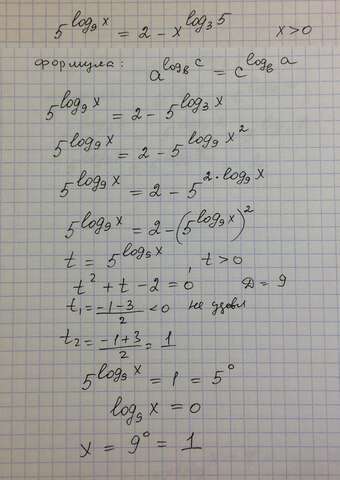 5^{log_9 x} = 2 - x^{log_3 5} x > 0
формула: a^{log_b c} = c^{log_b a}
5^{log_9 x} = 2 - 5^{log_3 x}
5^{log_9 x} = 2 - 5^{log_9 x^2}
5^{log_9 x} = 2 - 5^{2·log_9 x}
5^{log_9 x} = 2 - (5^{log_9 x})^2
t = 5^{log_9 x}, t > 0
t^2 + t - 2 = 0 D = 9
t_1 = \frac{-1-3}{2} < 0 не удовл
t_2 = \frac{-1+3}{2} = 1
5^{log_9 x} = 1 = 5^0
log_9 x = 0
x = 9^0 = 1